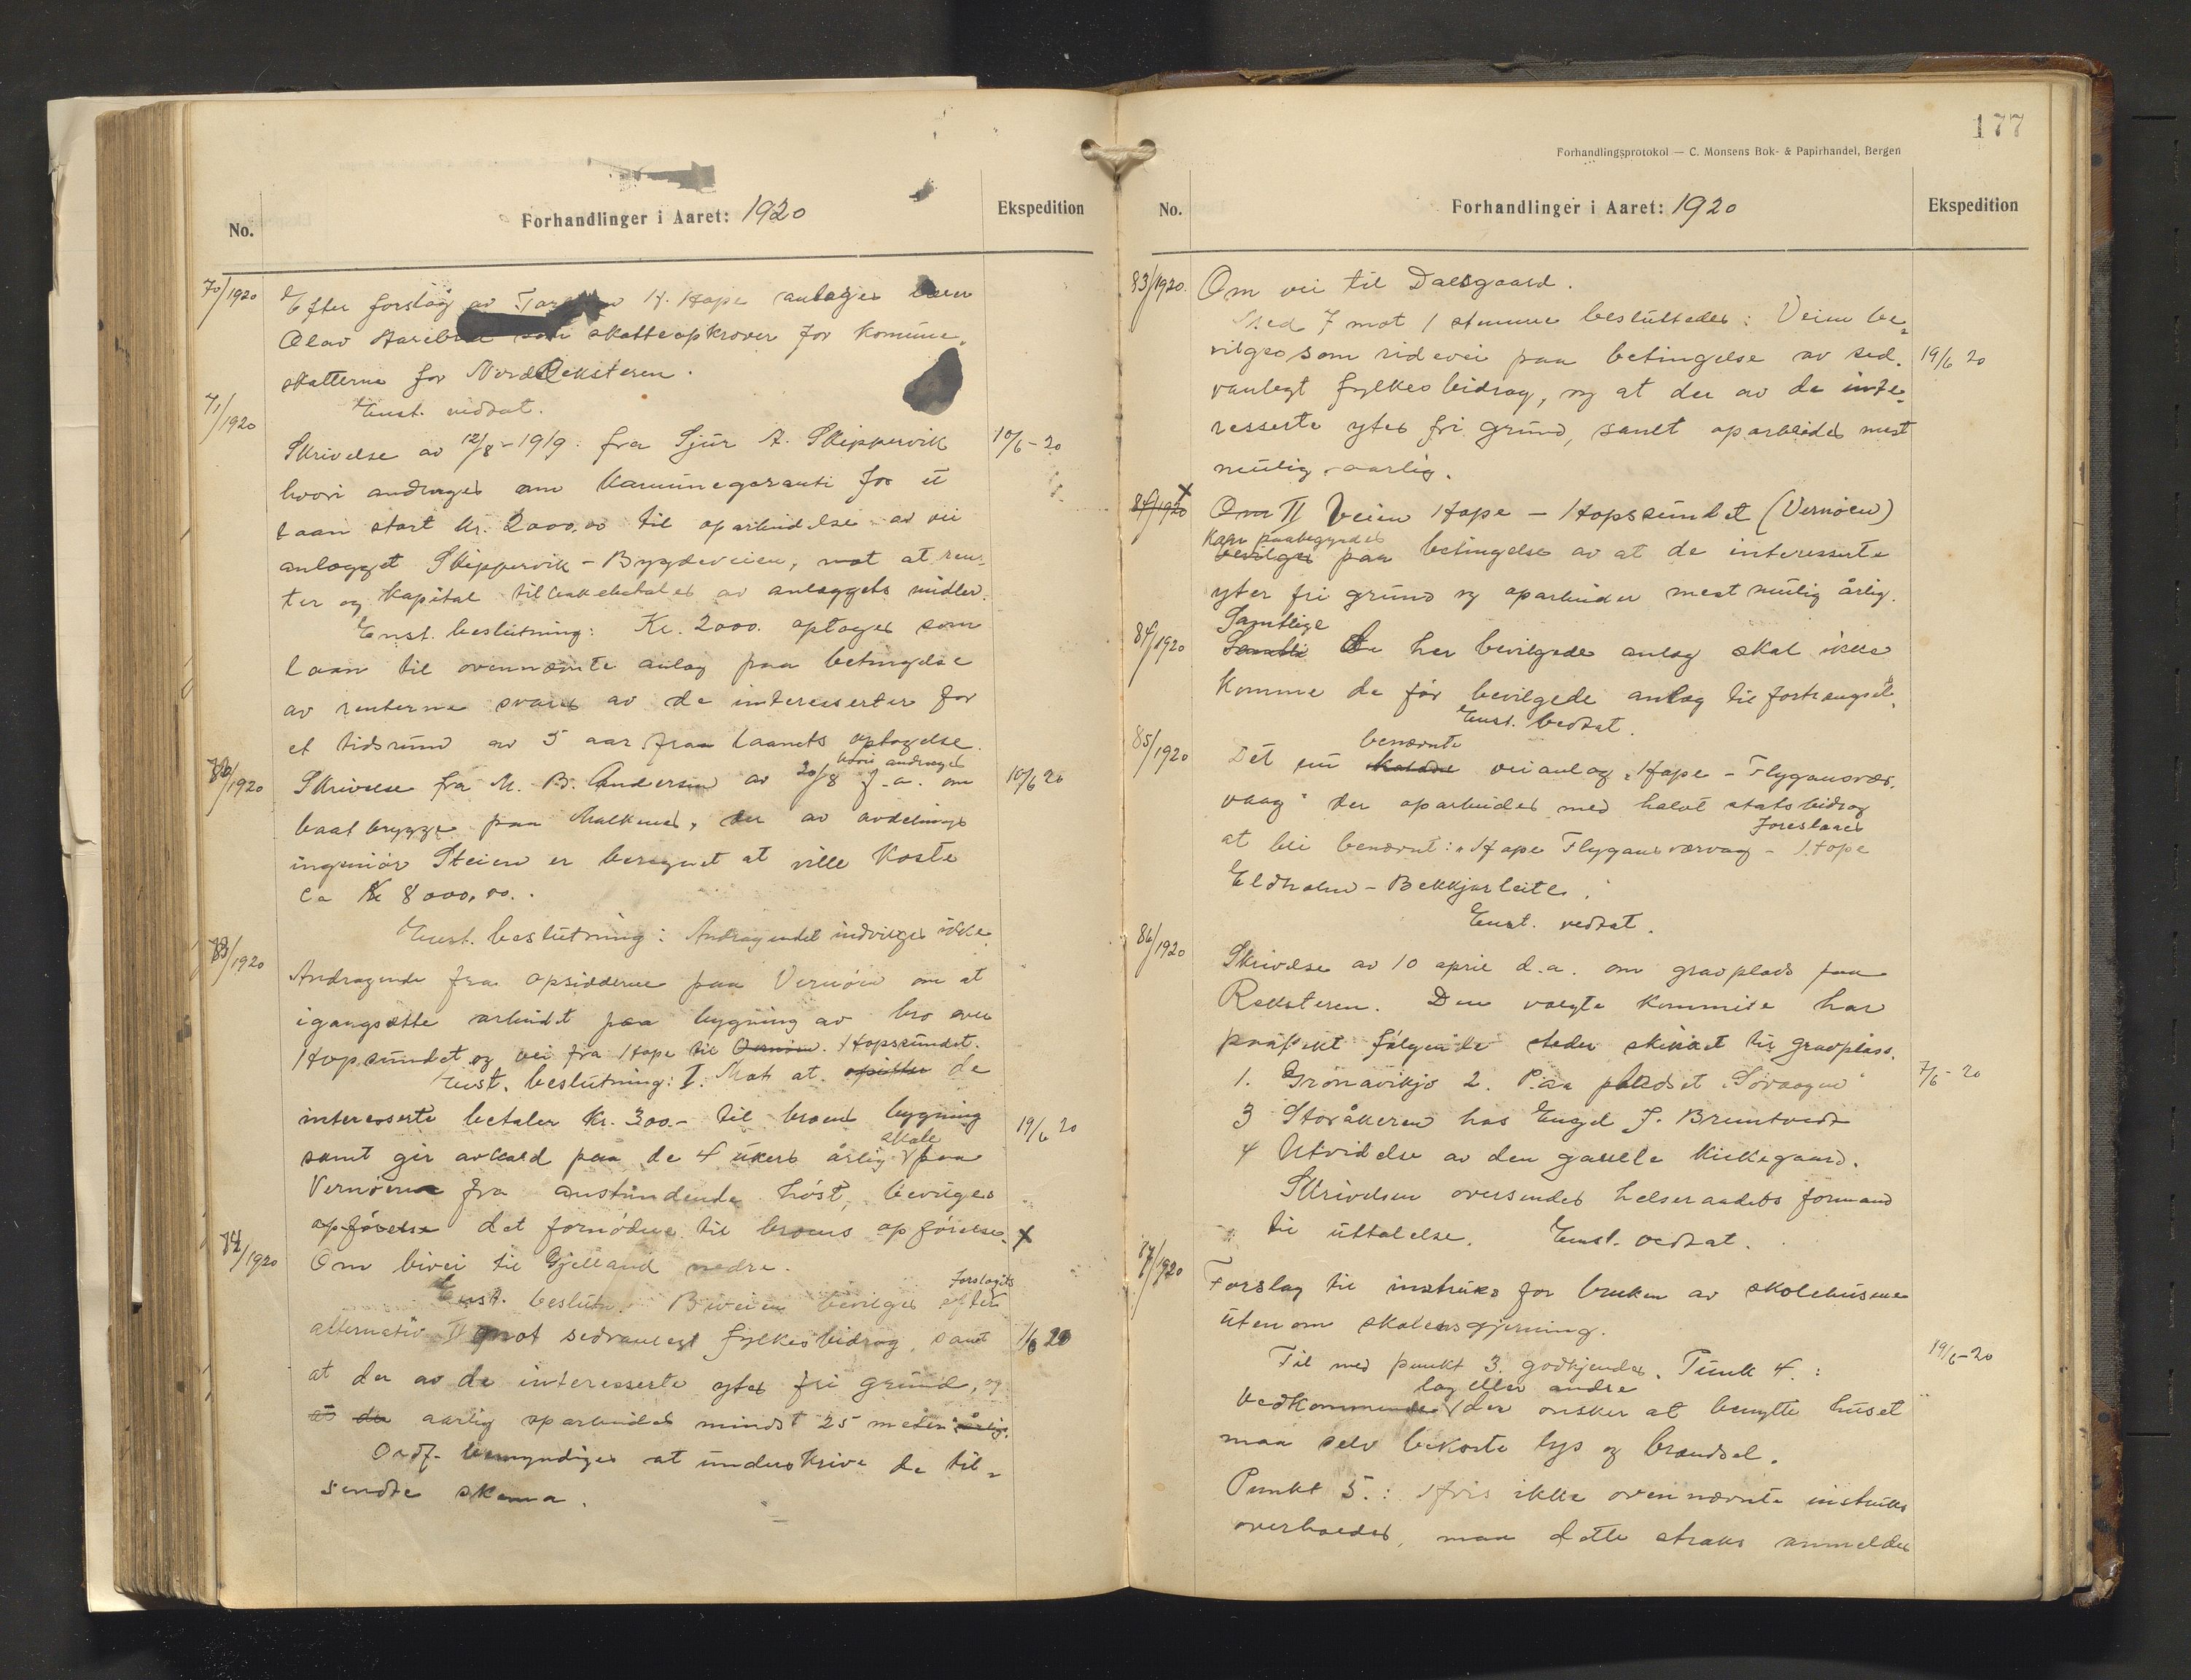 No.
Forhandlinger i Aaret: 1920
Ekspedition
70/1920
Efter forslag av H. Hope antages
Olav skatteopkræver for komune-
skatterne for Nord Reksteren.
Enst. vedtat.
71/1920
Skrivelse av 12/8-1919 fra Sjur A. Skippervik
10/6-20
hvori andrages om komunegaranti for et
laan stort kr. 2000,00 til oparbeidelse av vei
anlægget Skippervik - Bygdeveien, mot at ren-
ter og kapital tilbakebetales av anlæggets midler.
Enst. beslutning: Kr. 2000. optages som
laan til ovennævnte anlæg paa betingelse
av renterne svares av de interesserter for
et tidsrum av 5 aar fraa laanets optagelse.
/1920
hvori andrages
Skrivelse fra M. B. Andersen av 20/8 f.a. om
10/6 20
baatbrygge paa der av avdelings
ingeniör Steien er beregnet at ville koste
ca Kr 8000,00.
Enst. beslutning: Andragendet indvilges ikke.
/1920
Andragende fra opsidderne paa Vernöen om at
igangsætte arbeidet paa bygning av bro over
Hopsundet og vei fra Hope til Vernöen. Hopsundet.
Enst. beslutning: I. Mot at de
interesserte betaler kr. 300.- til broens bygning
19/6 20
skole
samt gir avkald paa de 4 ukers årlig paa
Vernöerne fra anstundende höst, bevilges
opförelse det fornödne til broens opförelse.
X
/1920
Om bivei til Gjelland nedre.
Enst. beslutn. Biveien bevilges efter
forslagets
alternativ II mot sedvanlegt fylkesbidrag, samt
/6 20
at der av de interesserte ytes fri grund, og
at der aarlig oparbeides mindst 25 meter årlig.
Ordf. bemyndiges at underskrive de til-
sendte skema.
177
Forhandlingsprotokol — C. Monsens Bok- & Papirhandel, Bergen
No.
Forhandlinger i Aaret: 1920
Ekspedition
83/1920.
Om vei til Dalsgaard.
Med 7 mot 1 stemme besluttedes: Veien be-
vilges som ridevei paa betingelse av sed-
19/6 20
vanlegt fylkesbidrag, og at der av de inte-
resserte ytes fri grund, samt oparbeides mest
mulig aarlig.
84/1920 X
Om II Veien Hope - Hopssundet (Vernöen)
Kan paabegyndes
bevilges paa betingelse av at de interesserte
yter fri grund og oparbeider mest mulig årlig.
Samtlige
84/1920
Samtli de her bevilgede anlæg skal ikke
komme de för bevilgede anlæg til fortrængsel.
Enst. vedtat.
85/1920
benævnte
Det nu veianlæg "Hope - Flygansvær-
vaag" der oparbeides med halvt statsbidrag
foreslaaes
at bli benævnt: "Hope Flygansværvag - Hope
Eldholm - Bekkjarleite.
Enst. vedtat.
86/1920
Skrivelse av 10 april d.a. om gravplads paa
Reksteren. Den valgte kommite har
paapekt fölgende steder skikket til gravplass.
1. Grönavikjo 2. Paa pladset "Sörvaagen"
7/6-20
3 Storåkeren hos Engel J. Bruntveit
4 Utvidelse av den gamle kirkegaard.
Skrivelsen oversendes helseraadets formand
til uttalelse. Enst. vedtat.
87/1920
Forslag til instruks for bruken av skolehusene
utenom skolens gjerning.
Til med punkt 3 godkjendes. Punk 4.:
19/6-20
lag eller andre
Vedkommende der önsker at benytte huset
maa selv bekoste lys og brændsel.
Punkt 5.: Hvis ikke ovennævnte instruks
overholdes, maa dette straks anmeldes